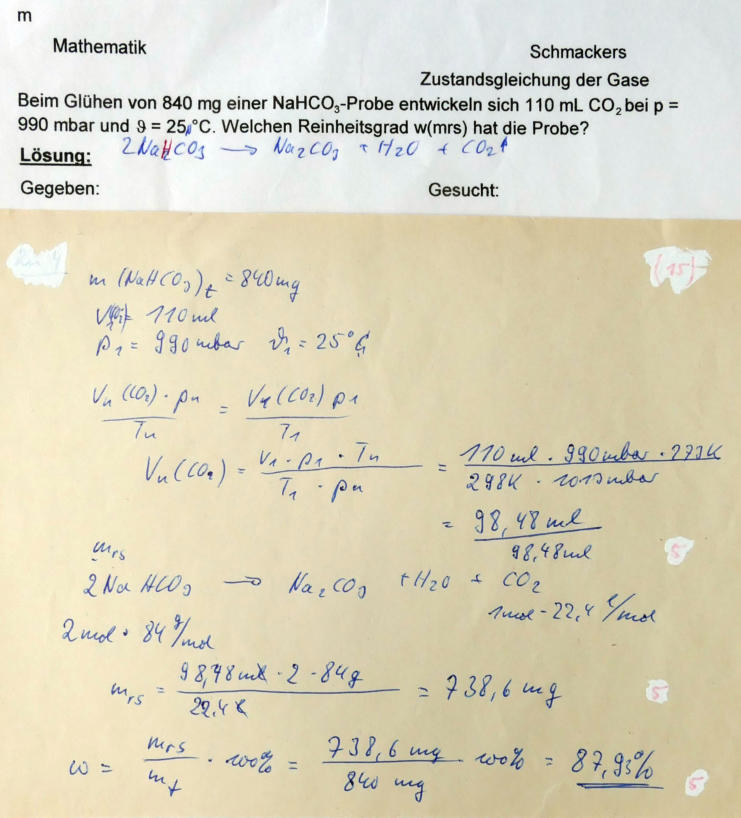 m
Mathematik
Schmackers
Zustandsgleichung der Gase
Beim Glühen von 840 mg einer NaHCO₃-Probe entwickeln sich 110 mL CO₂ bei p =
990 mbar und ϑ = 25,°C. Welchen Reinheitsgrad w(mrs) hat die Probe?
Lösung: 2NaHCO₃ → Na₂CO₃ + H₂O + CO₂↑
Gegeben: Gesucht:
(15)
m (NaHCO₃)t = 840mg
V₁ = 110ml
p₁ = 990mbar ϑ₁ = 25°C
Vn (CO₂) · pn / Tn = V₁ (CO₂) p1 / T1
Vn (CO₂) = V1 · p1 · Tn / T1 · pn = 110ml · 990mbar · 273K / 298K · 1013mbar
= 98,48ml / 98,48ml
5
mrs
2NaHCO₃ → Na₂CO₃ + H₂O + CO₂
1mol - 22,4 l/mol
2mol · 84 g/mol
mrs = 98,48ml · 2 · 84g / 22,4 l = 738,6 mg
5
w = mrs / mt · 100% = 738,6 mg / 840 mg · 100% = 87,93%
5